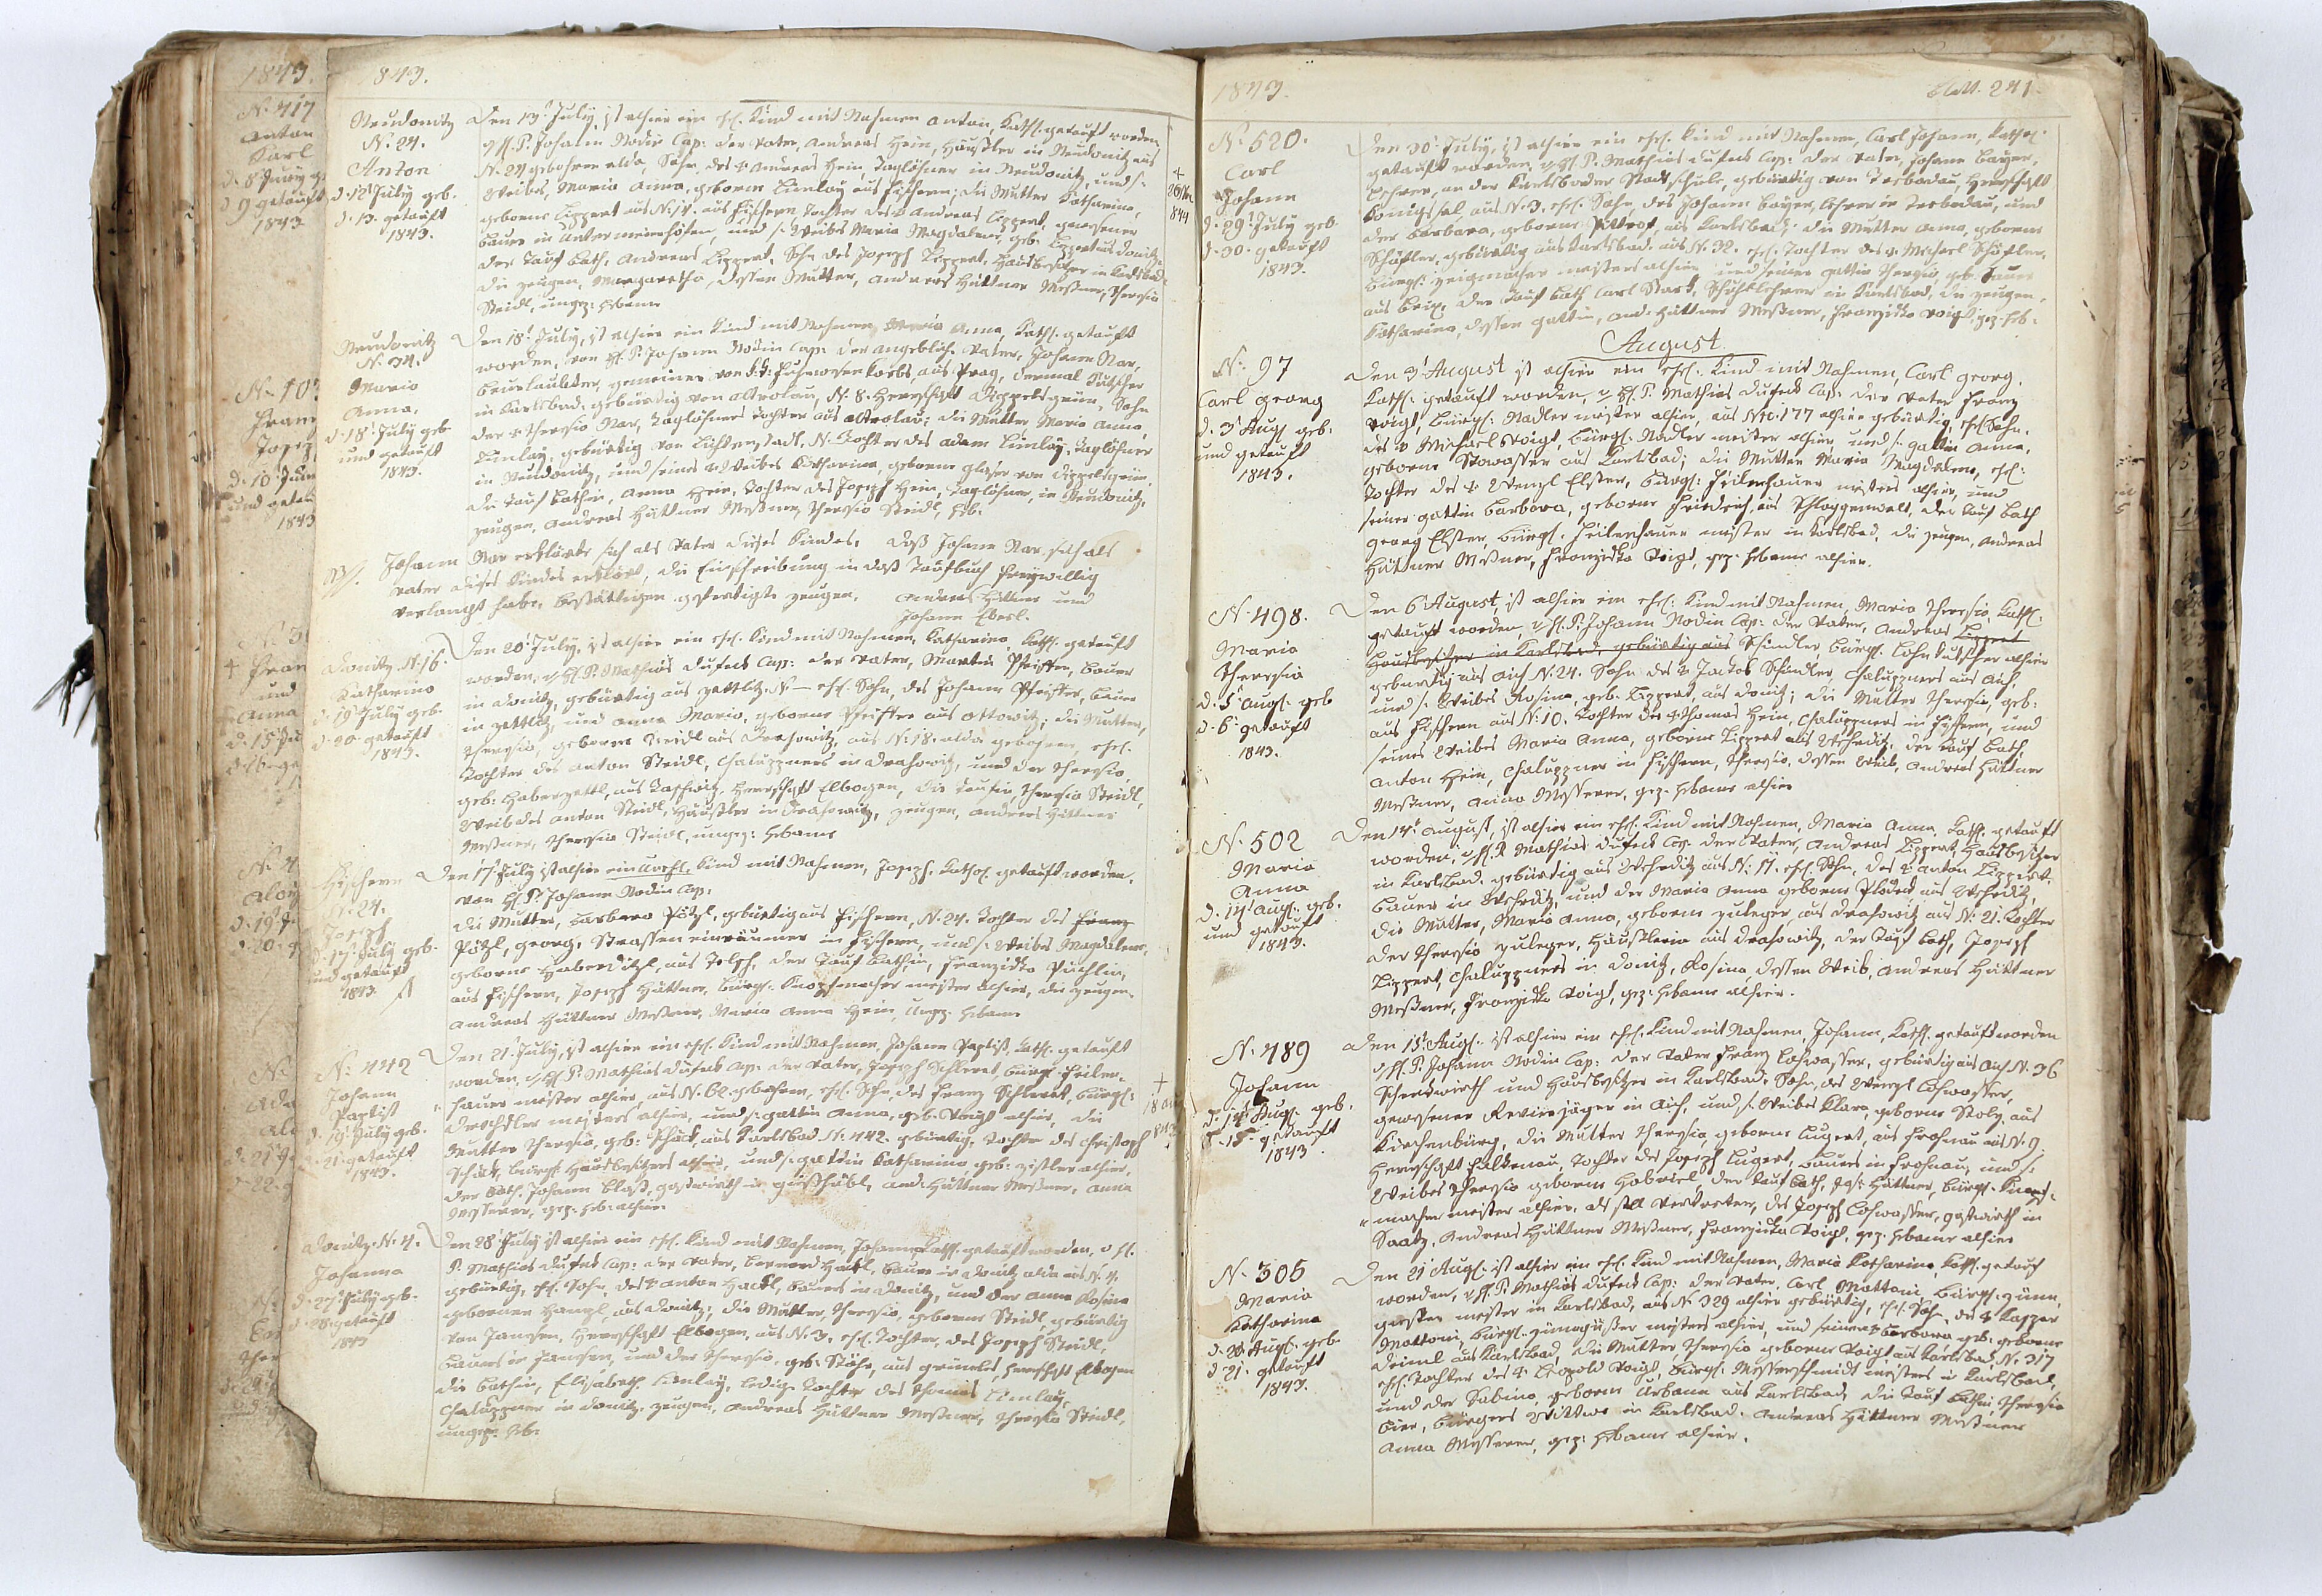 1843.
Neudonitz
N. 24.
Anton
d. 12t July geb.
d. 13. getauft
1843.
Den 13t July, ist alhier ein ehl. Kind mit Nahmen Anton, Kath. getauft worden,
v H. P. Johann Nodin Cap: der Vater, Andreas Hein, Häußler in Neudonitz aus
N. 24 gebohren alda, Sohn des + Andreas Hein, Taglöhner in Neudonitz, und s.
Weibes, Maria Anna, geborne Limlay aus Fischern; die Mutter Katharina,
geborne Lippert aus N: 14. aus Fischern Tochter des + Andreas Lippert, gewesener
Bauer in Untermeierhöfen, und s. Weibes Maria Magdalena, geb. Lippert aus Donitz.
Der Tauf Path, Andreas Lippert, Sohn des Joseph Lippert, Hausbesitzer in Karlsbad.
die Zeugen, Margaretha, dessen Mutter, Andreas Hüttner Meßner, Theresia
Steidl, ungep: Hebame
Neudonitz
N. 34.
Maria
Anna,
d. 18t July geb
und getauft
1843.
Den 18t July, ist alhier ein Kind mit Nahmen, Maria Anna, Kath. getauft
worden, von H. P. Johann Nodin Cap: der angebliche Vater, Johann Nar,
beurlaubter, gemeiner von k: k: Fuhrwesen Korbs, aus Prag, dermal Kutscher
in Karlsbad. gebürtig von Altrolau, N. 8. Herrschaft Dippelsgrün, Sohn
der + Theresia Nar, Taglöhners Tochter aus Altrolau; die Mutter Maria Anna,
Limlay, gebürtig von Lichtenstadt, N. Tochter des Adam Limlay, Taglöhner
in Neudonitz, und seines + Weibes Katharina, geborne Glaser von Dippelsgrün.
die Tauf Pathin, Anna Hein, Tochter des Joseph Hein, Taglöhner, in Neudonitz,
Zeugen, Andreas Hüttner Meßner, Theresia Steidl, Heb.
Johann Nar erklärte sich als Vater dieses Kindes. Daß Johann Nar, sich als
Vater dieses Kindes erklärt, die Einschreibung in daß Taufbuch freywillig
verlangt habe, bestättigen gefertigte Zeugen. Andreas Hüttner und
Johann Eberl.
Donitz N. 16.
Katharina
d. 19t July geb.
d. 20. getauft
1843.
Den 20t July, ist alhier ein ehl. Kind mit Nahmen, Katharina, Kath. getauft
worden, v H. P. Mathias Dufeck Cap: der Vater, Martin Pfeiffer, Bauer
in Donitz, gebürtig aus Zettlitz N. — ehl. Sohn, des Johann Pfeiffer, Bauer
in Zettlitz, und Anna Maria, geborne Pfeiffer aus Ottowitz; die Mutter,
Theresia, geborne Steidl aus Drahowitz, aus N. 18. alda gebohren, ehl.
Tochter des Anton Steidl, Chaluppners in Drahowitz, und der Theresia,
geb: Haberzettl, aus Taschwitz, Herrschaft Elbogen, die Taufin, Theresia Steidl,
Weib des Anton Steidl, Häußler in Drahowitz, Zeugen, Andreas Hüttner
Meßner, Theresia Steidl, ungep: Hebame
Fischern
N: 24.
Joseph
d. 17t July geb.
und getauft
1843.
Den 17t July ist alhier ein unehl. Kind mit Nahmen, Joseph. Kathol. getauft worden.
von H. P. Johann Nodin Cap:
die Mutter, Barbara Pötzl, gebürtig aus Fischern, N. 24. Tochter des Franz
Pötzl, Georg, Strasseneinräumer in Fischern, und s. Weibes Magdalena,
geborne Haberditzl, aus Tolesch, der Tauf Pathin, Franziska Püchlin,
aus Fischern, Joseph Hüttner, bürgl. Knopfmacher meister alhier, die Zeugen.
Andreas Hüttner Meßner, Maria Anna Hein, Ungep. Hebame
N: 442
Johann
Baptist
d. 19t July geb.
d. 21. getauft
1843.
Den 21t July, ist alhier ein ehl. Kind mit Nahmen, Johann Baptist, Kath. getauft
worden, v H. P. Mathias Dufeck Cap: der Vater, Joseph Schleret, bürgl: Feilen-
hauer meister alhier, aus N. 62. gebohren, ehl. Sohn, des Franz Schleret, bürgl:
Drechsler meisters alhier, und s. Gattin Anna, geb. Voigt alhier, die
Mutter Theresia, geb: Schäck, aus Karlsbad N. 442. gebürtig, Tochter des Christoph
Schäck, bürgl: Hausbesitzers alhier, und s. Gattin Katharina, geb. Zistler alhier.
der Path. Johann Blaß, Gastwirth in Gießhübl, And: Hüttner Meßner, Anna
Messerer, gep: Heb: alhier
Donitz N: 4.
Johanna
d. 27t July geb.
d. 28. getauft
1843
Den 28t July ist alhier ein ehl. Kind mit Nahmen, Johanna, Kath. getauft worden, v H.
P. Mathias Dufeck Cap: der Vater, Bernard Hackl, Bauer in Donitz alda aus N. 4.
gebürtig, ehl. Sohn, des + Anton Hackl, Bauers in Donitz, und der Anna Rosina
gebornen Hanzl, aus Donitz, die Mutter, Theresia, geborne Steidl, gebürtig
von Janesen, Herrschaft Elbogen, aus N. 3. ehl. Tochter, des Joseph Steidl,
Bauers in Janesen, und der Theresia, geb. Stöhr, aus Grünlas, Herrschaft Elbogen
die Pathin, Elisabeth Limlay, ledige Tochter des Thomas Limlay,
Chaluppner in Donitz. Zeugen, Andreas Hüttner Meßner, Theresia Steidl,
ungep: Heb.
1843.
Blatt. 241.
N. 520.
Carl
Johann
d. 29t July geb
d. 30. getauft
1843.
Den 30t July, ist alhier ein ehl. Kind mit Nahmen, Carl Johann, Kathol.
getauft worden, v H. P. Mathias Dufeck Cap: der Vater, Johann Bayer,
Lehrer, an der Karlsbader Stadtschule, gebürtig von Tesbedau, Herrschaft
Königssal, aus N. 3. ehl. Sohn, des Johann Bayer, Lehrer in Tesbedau, und
der Barbara, geborne Pittrof, aus Karlsbad; die Mutter Anna, geborne
Schäfler, gebürtig aus Karlsbad. aus N. 32. ehl. Tochter des + Michael Schäfler,
bürgl: Zeugmacher meisters alhier und seiner Gattin Theresia, geb. Sauer
aus Brüx, der Tauf Path Carl Stark, Schullehrer in Karlsbad, die Zeugen,
Katharina, dessen Gattin, And: Hüttner Meßner, Franziska Voigt, gep: Heb.
August
N: 97
Carl Georg
d. 3t Aug. geb.
und getauft
1843.
Den 3t August ist alhier ein ehl. Kind mit Nahmen, Carl Georg,
Kath. getauft worden, v H. P. Mathias Dufeck Cap: der Vater Franz
Voigt, bürgl: Nadler meister alhier, aus Nro. 177 alhier gebürtig, ehl. Sohn,
des + Michael Voigt, bürgl: Nadler meister alhier, und s. Gattin Anna,
geborne Stowasser aus Karlsbad; die Mutter Maria Magdalena, ehl:
Tochter des + Wenzl Elster, bürgl: Feilenhauer meisters alhier, und
seiner Gattin Barbara, geborne Friedrich, aus Schlaggenwalt, der Tauf Path
Georg Elster, bürgl. Feilenhauer meister in Karlsbad, die Zeugen, Andreas
Hüttner Meßner, Franziska Voigt, gep. Hebame alhier.
N. 498.
Maria
Theresia
d. 5t Aug. geb
d. 6t getauft
1843.
Den 6t August, ist alhier ein ehl: Kind mit Nahmen, Maria Theresia, Kath.
getauft worden, v H. P. Johann Nodin Cap: der Vater, Andreas Lippert
Hausbesitzer in Karlsbad, gebürtig aus Schindler, bürgl. Lohnkutscher alhier
gebürtig aus Aich N. 24. Sohn des + Jackob Schindler, Chaluppners aus Aich,
und s. Weibes Rosina, geb. Lippert, aus Donitz; die Mutter Theresia, geb:
aus Fischern aus N: 10. Tochter des + Thomas Hein, Chaluppners in Fischern, und
seines Weibes Maria Anna, geborne Lippert aus Weheditz. der Tauf Path,
Anton Hein, Chaluppner in Fischern, Theresia, dessen Weib, Andreas Hüttner
Meßner, Anna Messerer, gep. Hebame alhier
N. 502
Maria
Anna
d. 14t Aug. geb.
und getauft
1843.
Den 14t August, ist alhier ein ehl. Kind mit Nahmen, Maria Anna, Kath. getauft
worden, v H. P. Mathias Dufeck Cap. der Vater, Andreas Lippert, Hausbesitzer
in Karlsbad. gebürtig aus Weheditz aus N: 17. ehl. Sohn, des + Anton Lippert.
Bauer in Weheditz, und der Maria Anna geborne Plödeck aus Weheditz,
die Mutter, Maria Anna, geborne Zuleger, aus Drahowitz aus N: 21. Tochter
der Theresia Zuleger, Häußlerin aus Drahowitz, der Tauf Path, Joseph
Lippert, Chaluppners in Donitz, Rosina, dessen Weib, Andreas Hüttner
Meßner, Franziska Voigt, gep: Hebame alhier.
N. 489
Johann
d. 14t Aug. geb.
d. 15. getauft
1843
Den 15t Aug. ist alhier ein ehl. Kind mit Nahmen, Johann, Kath. getauft worden
v H. P. Johann Nodin Cap: der Vater Franz Lohwasser, gebürtig aus Aich N. 36
Schenkwirth und Hausbesitzer in Karlsbad. Sohn, des Wenzl Lohwasser,
gewesener Revierjäger in Aich, und s. Weibes Klara, geborne Stolz, aus
Kirchenbürg, die Mutter Theresia geborne Lugert, aus Frohnau aus N. 9
Herrschaft Falkenau, Tochter des Joseph Lugert, Bauers in Frohnau, und s.
Weibes Theresia geborne Gabriel der Tauf Path, Jos: Hüttner, bürgl. Knopf-
macher meister alhier. als stell vertreter, des Joseph Lohwasser, Gastwirth in
Saatz. Andreas Hüttner Meßner, Franziska Voigt, gep. Hebame alhier
N. 305
Maria
Katharina
d. 20 Aug. geb
d. 21. getauft
1843.
Den 21t Aug. ist alhier ein ehl. Kind mit Nahmen, Maria Katharina, Kath. getauft
worden, v H. P. Mathias Dufeck Cap: der Vater, Carl Mattoni, bürgl. Zinn-
giesser meister in Karlsbad, aus N. 329 alhier gebürtig, ehl. Sohn, des + Kaspar
Mattoni, bürgl. Zinngüßer meisters alhier, und seiner + Barbara geb: geborne
Deiml aus Karlsbad, die Mutter Theresia geborne Voigt, aus Karlsbad, N. 317
ehl. Tochter des + Leopold Voigt, bürgl. Messerschmidt meisters in Karlsbad,
und der Sabina, geborne Urbann aus Karlsbad, die Tauf Pathin, Theresia
Bier, Bürgers Wittwe in Karlsbad. Andreas Hüttner Meßner
Anna Messerer, gep: Hebame alhier.